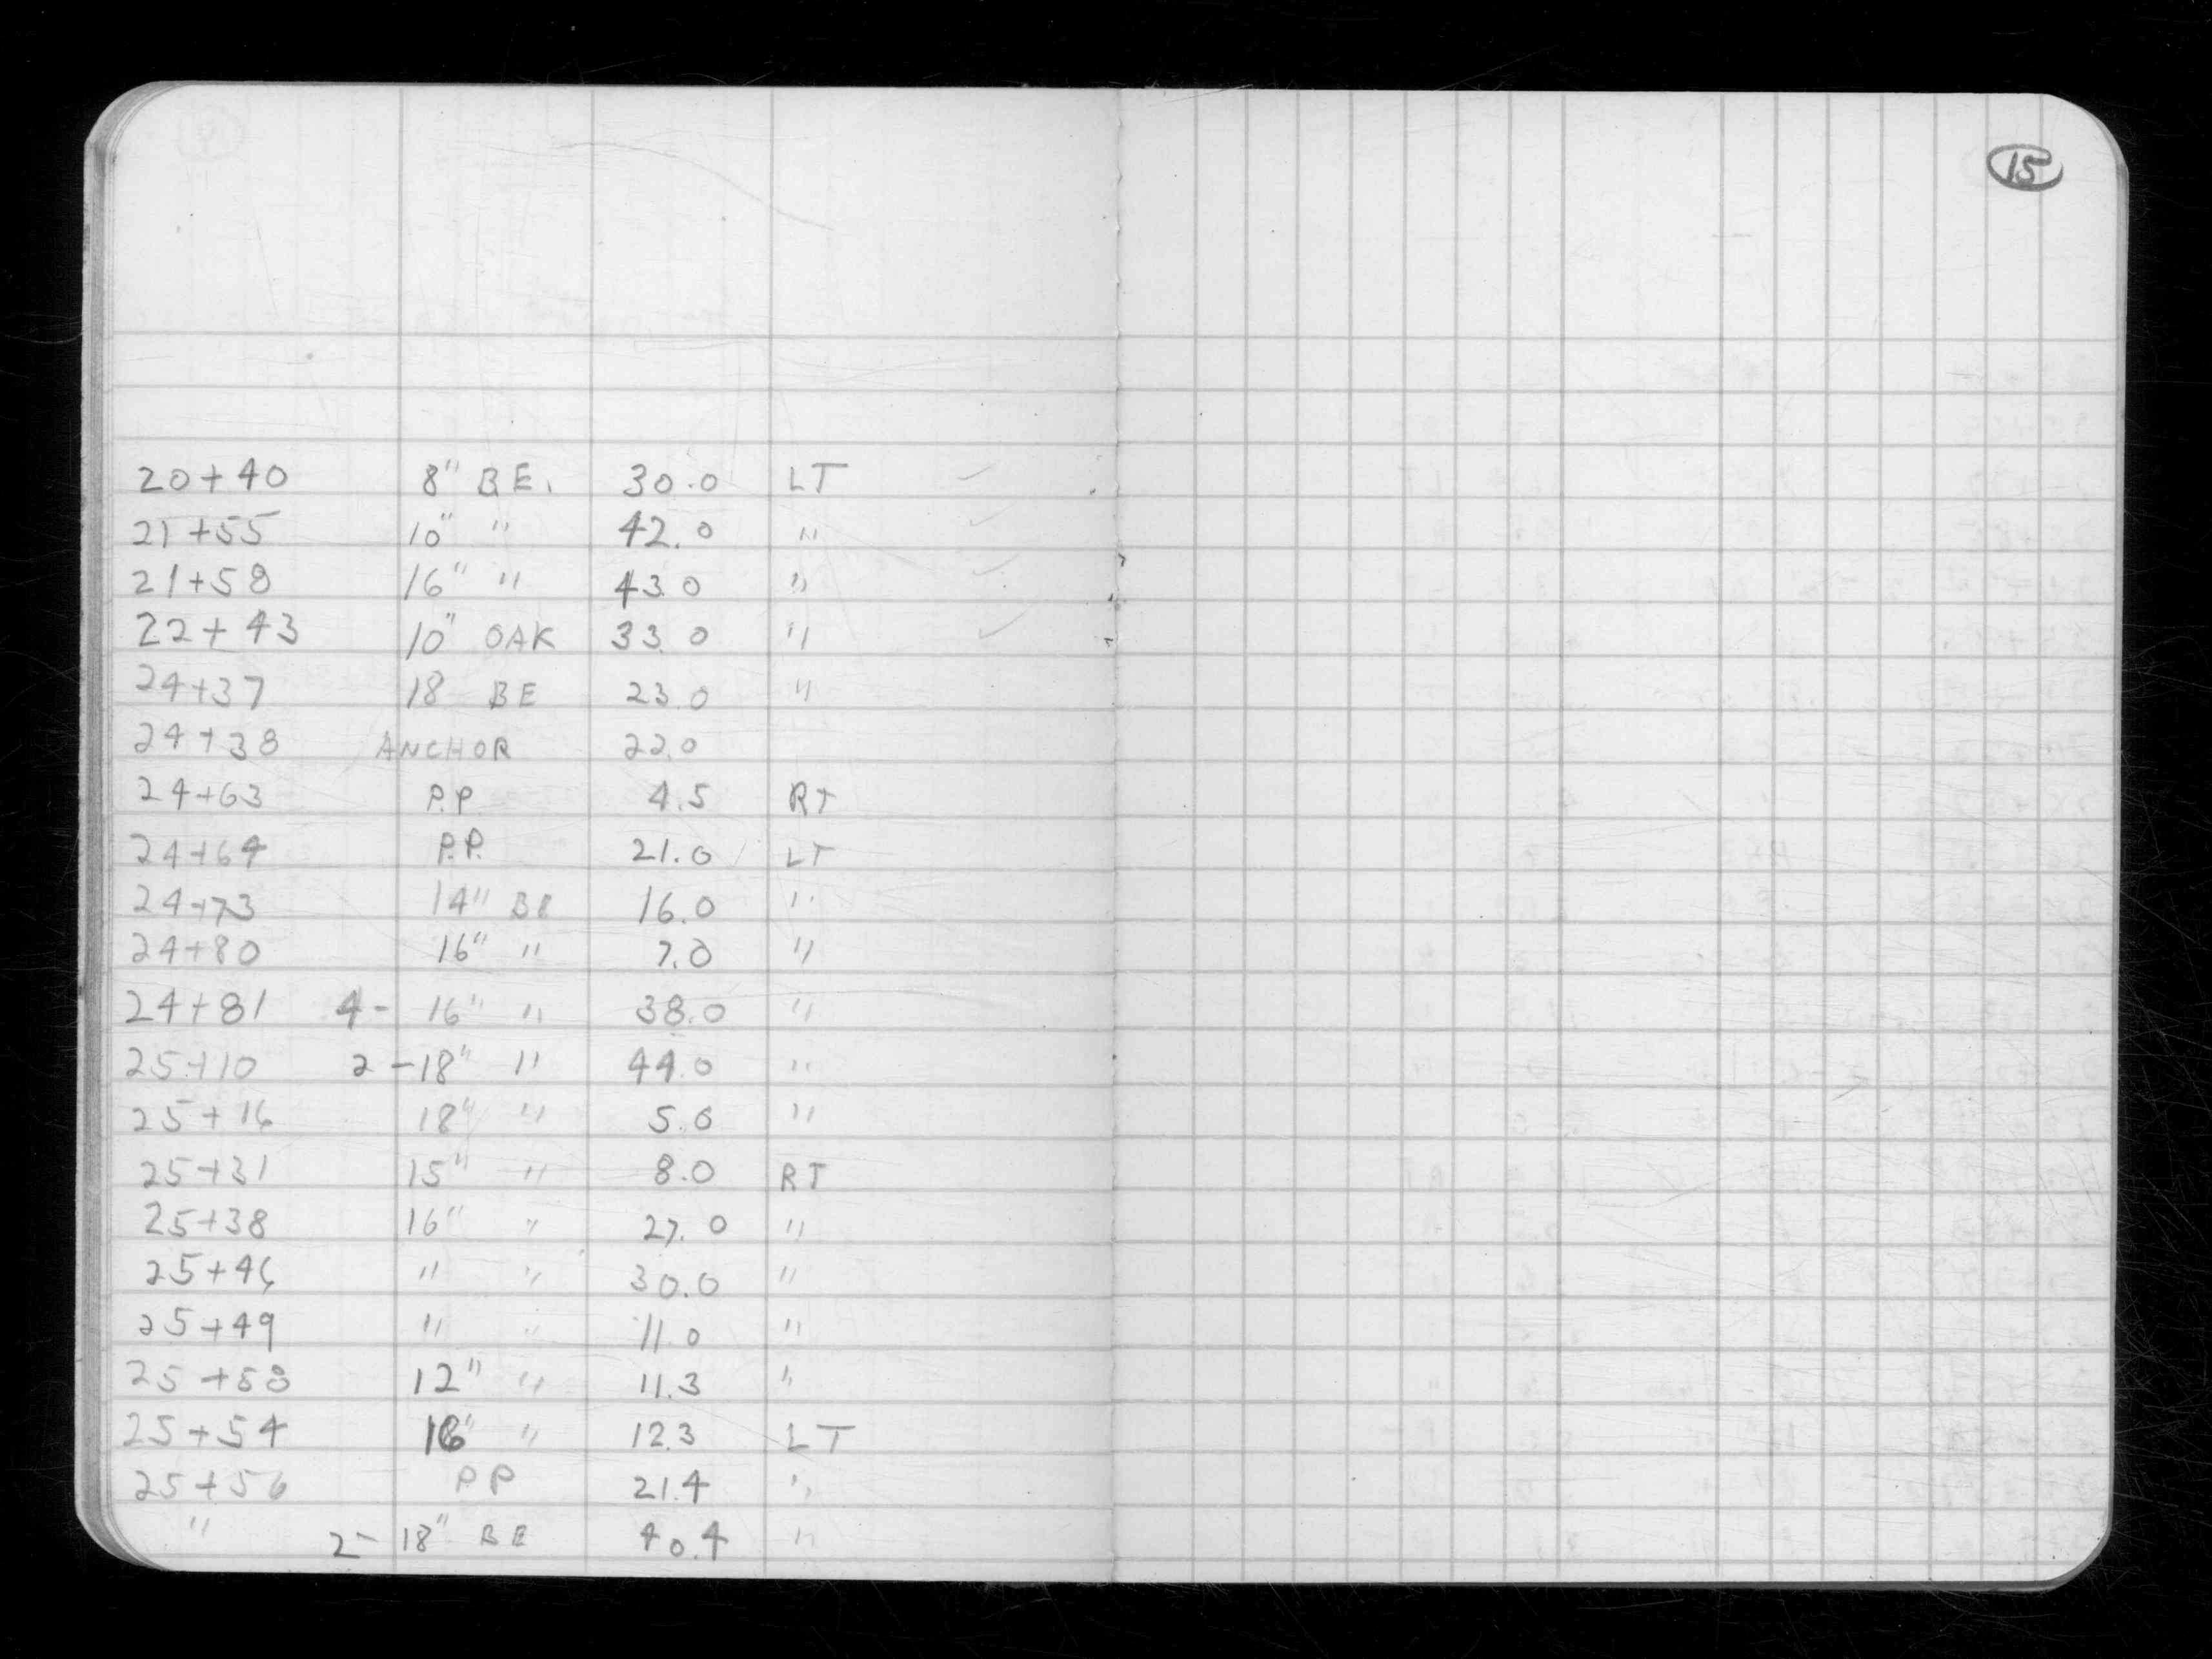 15
20+40 8" BE. 30.0 LT
21+55 10" " 42.0 "
21+58 16" " 43.0 "
22+43 10" OAK 33.0 "
24+37 18 BE 23.0 "
24+38 ANCHOR 22.0
24+63 P.P 4.5 RT
24+64 P.P. 21.0 LT
24+73 14" BE 16.0 "
24+80 16" " 7.0 "
24+81 4- 16" " 38.0 "
25+10 2-18" " 44.0 "
25+16 18" " 5.0 "
25+31 15" " 8.0 RT
25+38 16" " 27.0 "
25+46 " " 30.0 "
25+49 " " 11.0 "
25+58 12" " 11.3 "
25+54 " 12.3 LT
25+56 PP 21.4 "
" 2- 18" BE 40.4 "